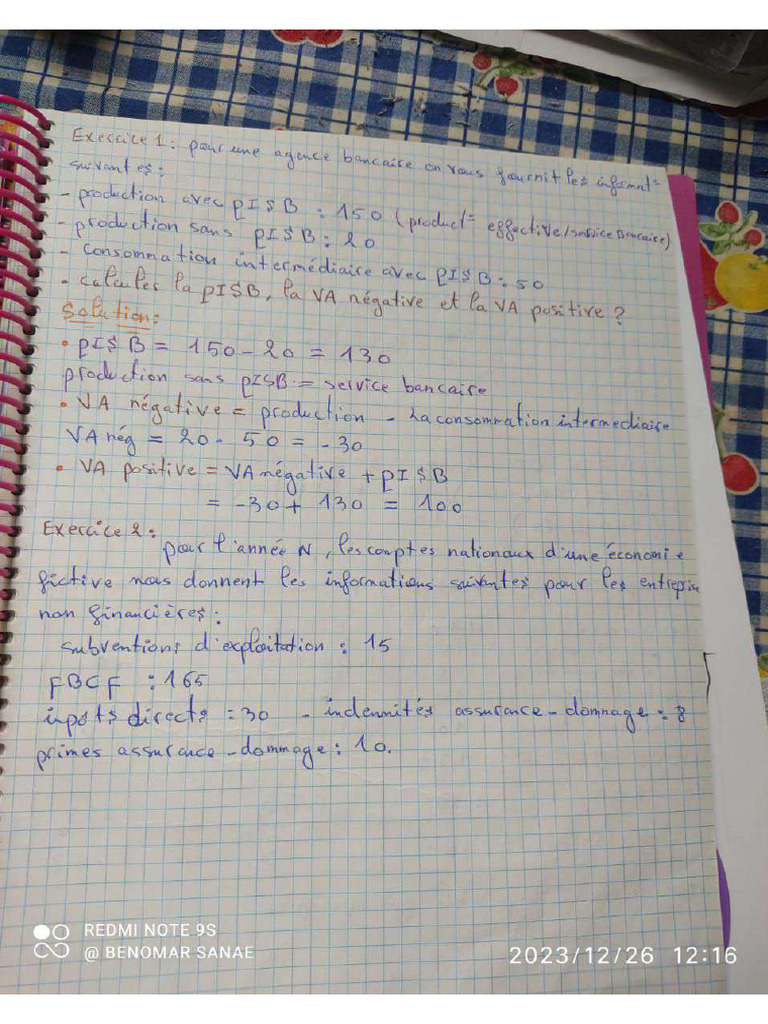 Exercice 1: pour une agence bancaire on vous fournit les informat=
suivantes:
- production avec PI$B : 150 (product= effective/service Bancaire)
- production sans PI$B: 20
- consommation intermédiaire avec PI$B: 50
- calculer la PI$B, la VA négative et la VA positive ?
Solution:
• PI$B = 150 - 20 = 130
production sans PISB = service bancaire
• VA négative = production - la consommation intermediaire
VA nég = 20 - 50 = -30
• VA positive = VA négative + PI$B
= -30 + 130 = 100
Exercice 2:
pour l'année N, les comptes nationaux d'une économie
fictive nous donnent les informations suivantes pour les entrepise
non financières:
subventions d'exploitation : 15
FBCF : 165
inpots directs = 30 - indennités assurance-domnage : 8
primes assurance-dommage: 10.
REDMI NOTE 9S
@ BENOMAR SANAE
2023/12/26 12:16